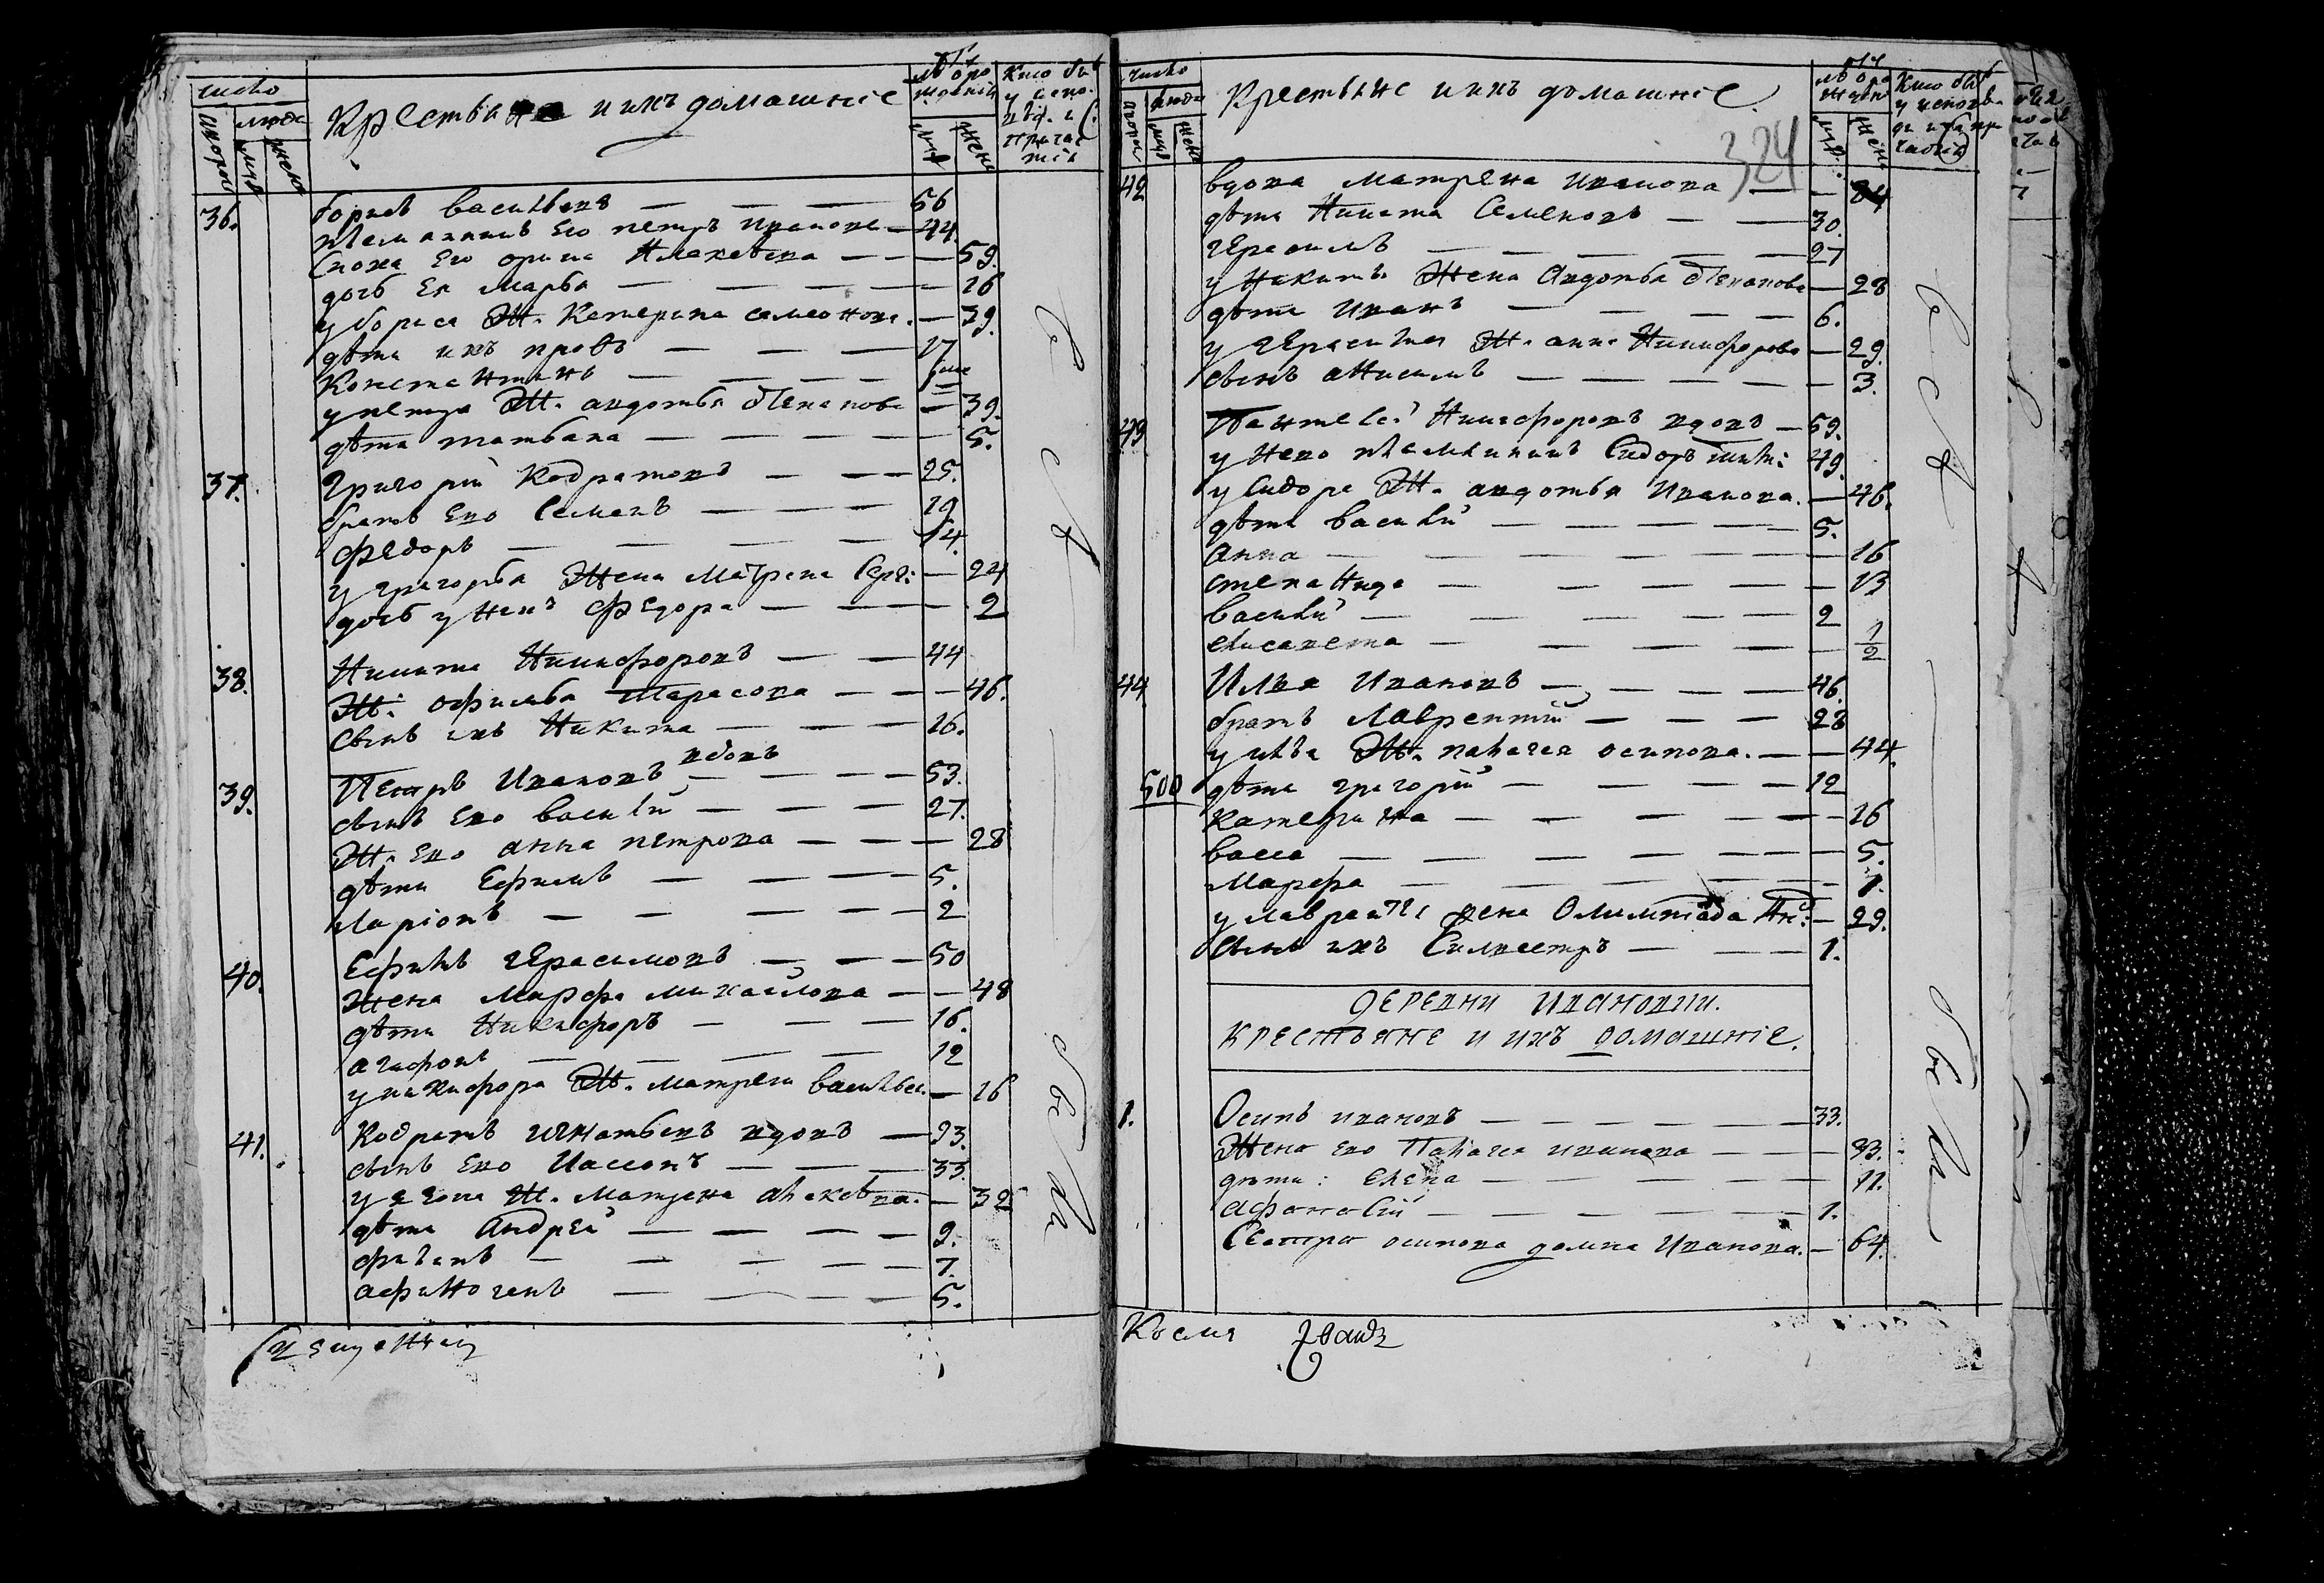 число
двора
людей
муж
жен
Крестьяне и ихъ домашнiе
муж
жен
36. Борисъ Васильевъ — — — 56
племянникъ Его петръ ивановъ — 44.
сноха Его орина Алексѣева — — — 59.
дочь Ея Марья — — — — — 26
у бориса Ж. Катерина самсонова. — 39.
дѣти ихъ провъ — — — 17
Константинъ — — — —
у петра Ж. авдотья Степанова — 39.
дѣти татьяна — — — — — 5.
37. Григорiй Кодратовъ — — — 25.
братъ Его Семенъ — — — 19
Федоръ — — — — 14.
у григорья Жена Матрена Серг: — 24
дочь у них Федора — — — — 2
38. Никита Никифоровъ — — 44
Ж. офимья Тарасова — — — 46.
сынъ ихъ Никита — — — 16.
39. Петръ Ивановъ вдовъ — — — — 53.
сынъ Его василiй — — — 27.
Ж. Его анна петрова — — — 28
дѣти Ефимъ — — — — 5.
ларiонъ — — — — — 2
40. Ефимъ Герасимовъ — — — 50
Жена Марфа михайлова — — 48
дѣти Никифоръ — — — 16.
агафонъ — — — — 12
у никифора Ж. матрена васильев. — 26
41. Кодратъ игнатьевъ вдовъ — 93.
сынъ Его Иассонъ — — — 33.
у язона Ж. Матрена алексѣвна. — 32
дѣти Андрей — — — — 9.
— — — — 7.
афиногенъ — — — 5.
число
двора
людей
муж
жен
Крестьяне и ихъ домашнiе.
муж.
жен
324
42 вдова матрена иванова — — 84
дѣти Никита Семеновъ — — 30.
Герасимъ — — — — 27
у Никиты Жена Авдотья Степанова — 28
дѣти иванъ — — — — 6.
у Герасима Ж. анна Никифорова — 29.
сынъ анисимъ — — — — — 3.
43 Пантелей Никифоровъ вдовъ — 59.
у него племянникъ Сидоръ 49.
у Сидора Ж. авдотья иванова. — 46.
дѣти василiй — — — — — 5.
анна — — — — — — — 16
степанида — — — — — 13
василiй — — — — — 2
елисавета — — — — — 1/2
44 Илья ивановъ — — — — 46.
братъ лаврентiй — — — 28
у ильи Ж. палагея осипова. — — 44.
500 дѣти григорiй — — — — 12
катерина — — — — — 16
васса — — — — — — 5.
Марфа — — — — — — 1.
у лаврентья жена Олимпiада — 29.
сынъ ихъ Силвестръ — — — 1.
ДЕРЕВНИ ИВАНОВКИ.
КРЕСТЬЯНЕ И ИХЪ ДОМАШНIЕ.
1. Осипъ ивановъ — — — — — — 33.
Жена Его Палагея иванова — — — 33.
дѣти: Елена — — — — — — 11.
афонасiй — — — — — — 1.
Сестра осипова домна Иванова. — 64.
Косма